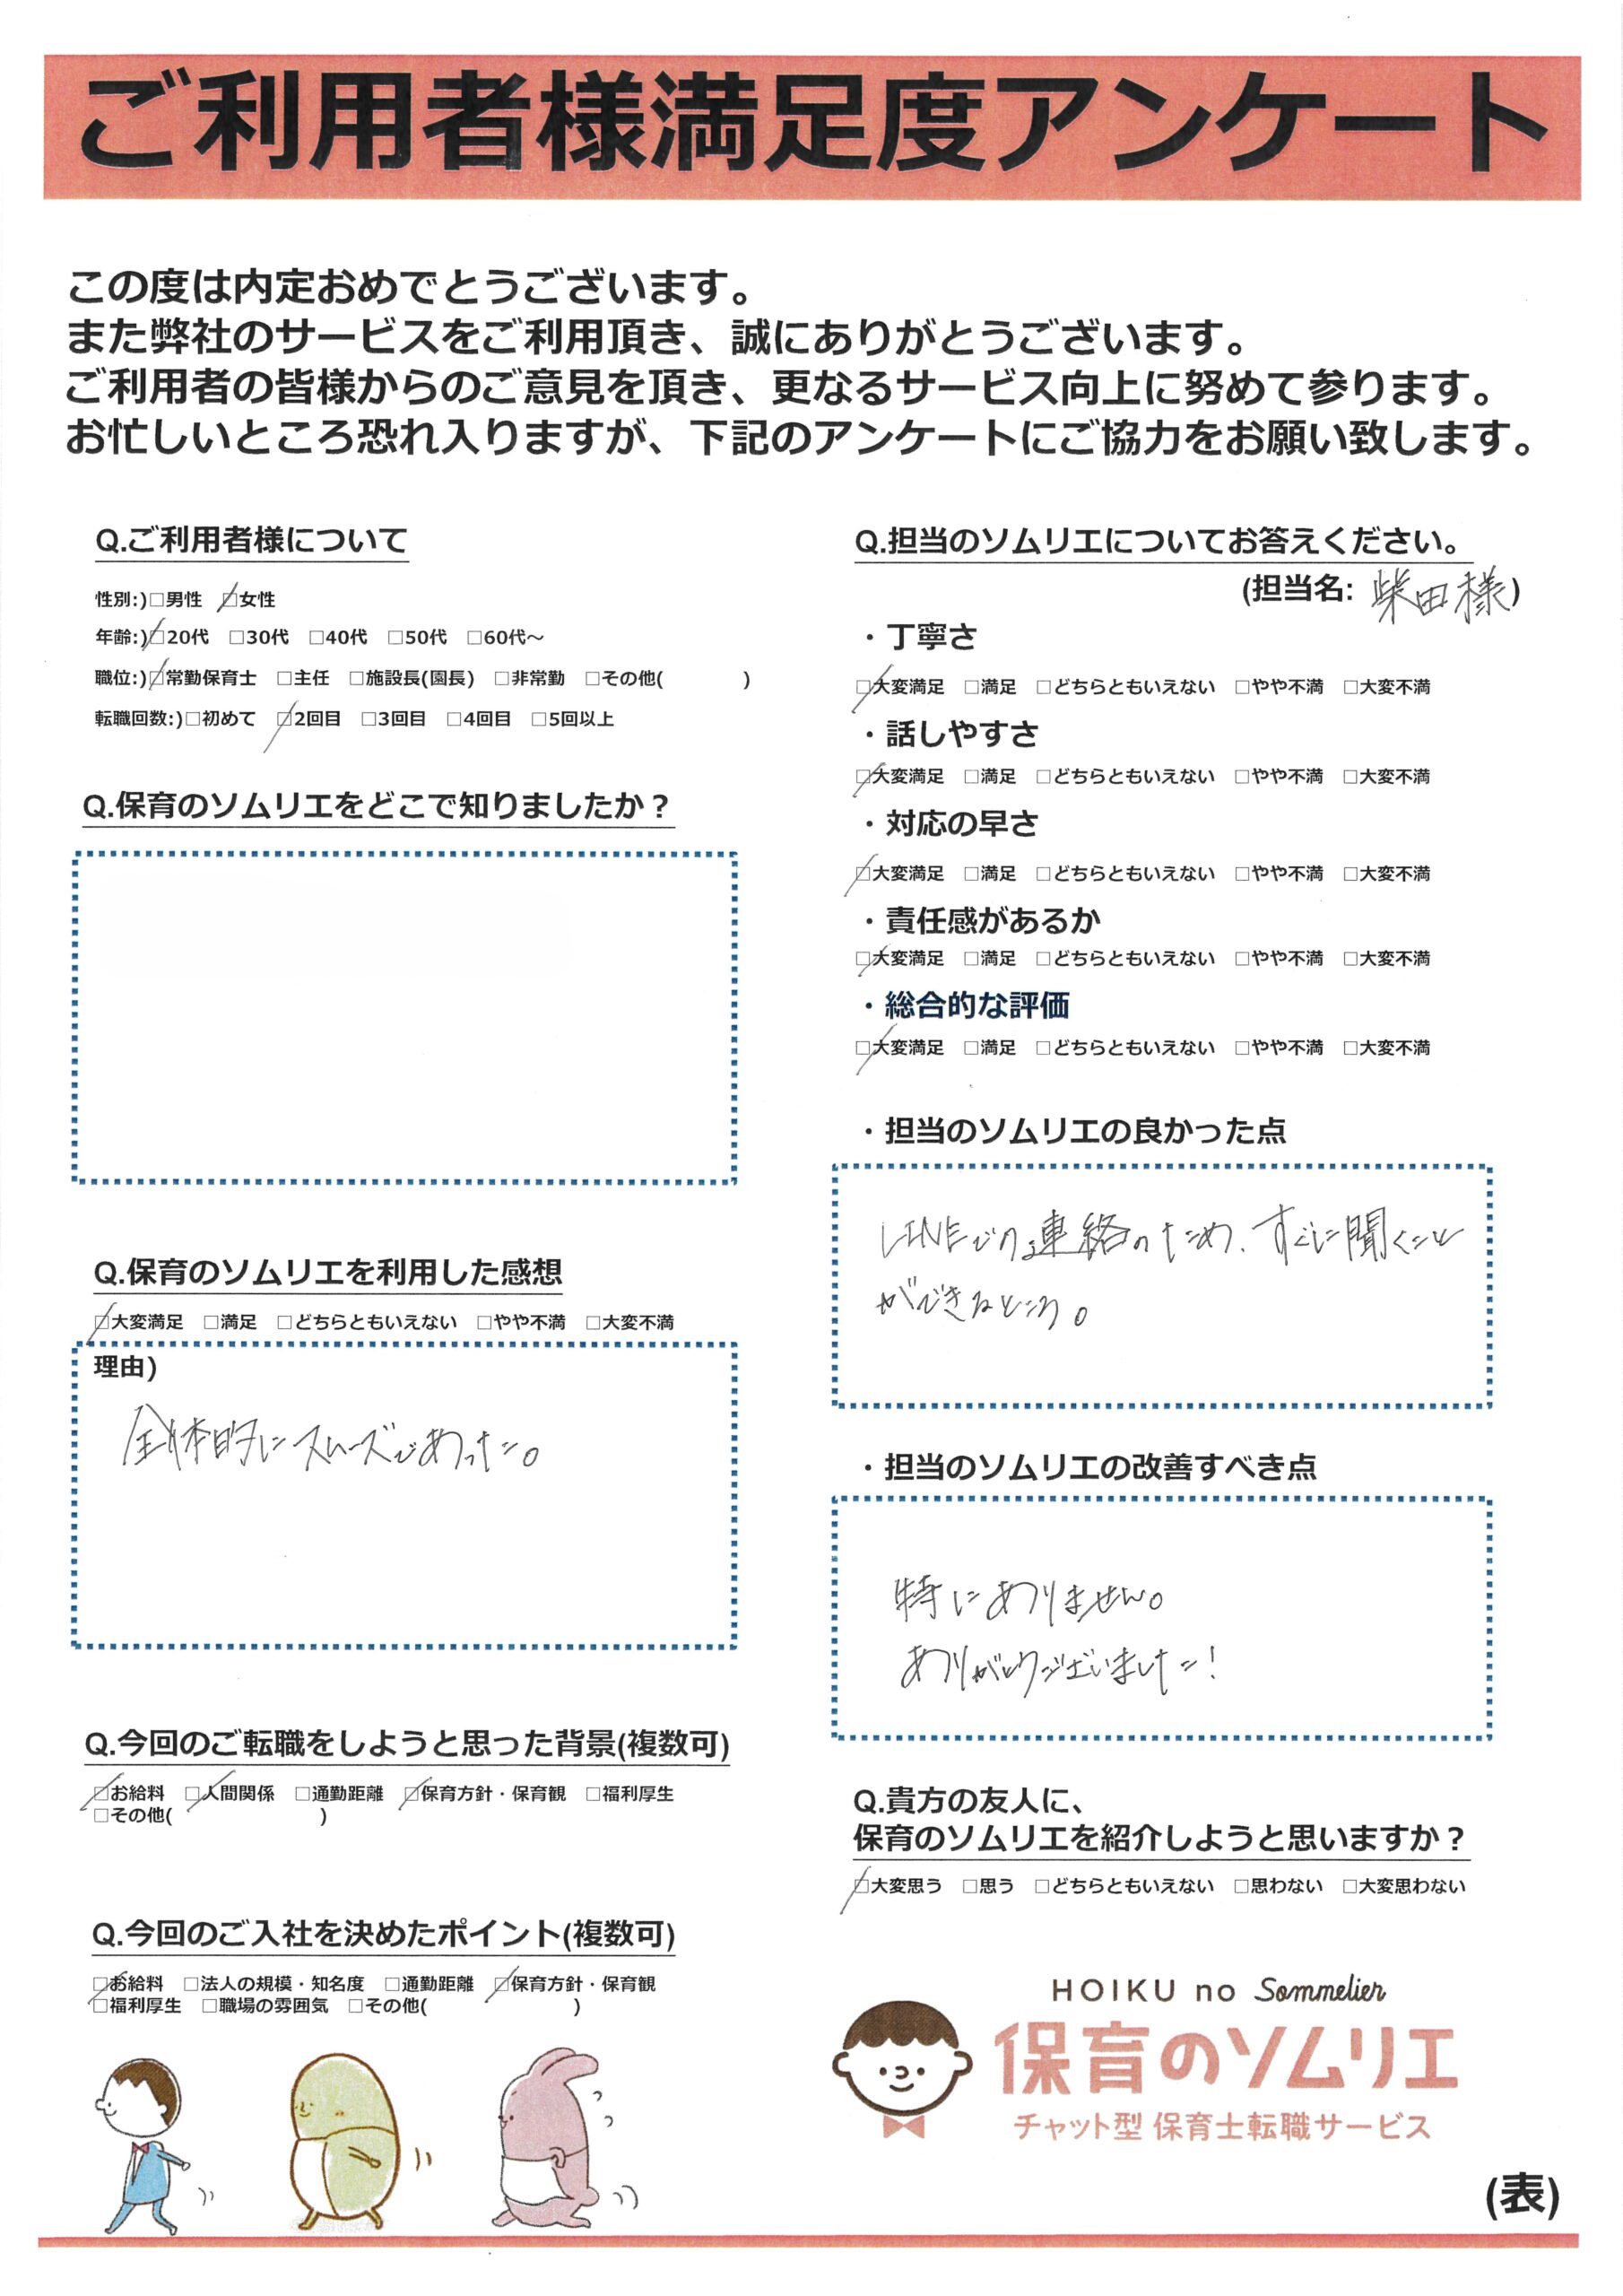 ご利用者様満足度アンケート
この度は内定おめでとうございます。
また弊社のサービスをご利用頂き、誠にありがとうございます。
ご利用者の皆様からのご意見を頂き、更なるサービス向上に努めて参ります。
お忙しいところ恐れ入りますが、下記のアンケートにご協力をお願い致します。
Q.ご利用者様について
性別:)□男性 □女性
年齢:)□20代 □30代 □40代 □50代 □60代～
職位:)□常勤保育士 □主任 □施設長(園長) □非常勤 □その他( )
転職回数:)□初めて □2回目 □3回目 □4回目 □5回以上
Q.保育のソムリエをどこで知りましたか？
Q.保育のソムリエを利用した感想
□大変満足 □満足 □どちらともいえない □やや不満 □大変不満
理由)
全体的にスムーズであった。
Q.今回のご転職をしようと思った背景(複数可)
□お給料 □人間関係 □通勤距離 □保育方針・保育観 □福利厚生
□その他( )
Q.今回のご入社を決めたポイント(複数可)
□お給料 □法人の規模・知名度 □通勤距離 □保育方針・保育観
□福利厚生 □職場の雰囲気 □その他( )
Q.担当のソムリエについてお答えください。
(担当名: 柴田様)
・丁寧さ
□大変満足 □満足 □どちらともいえない □やや不満 □大変不満
・話しやすさ
□大変満足 □満足 □どちらともいえない □やや不満 □大変不満
・対応の早さ
□大変満足 □満足 □どちらともいえない □やや不満 □大変不満
・責任感があるか
□大変満足 □満足 □どちらともいえない □やや不満 □大変不満
・総合的な評価
□大変満足 □満足 □どちらともいえない □やや不満 □大変不満
・担当のソムリエの良かった点
LINEでの連絡のため、すぐに聞くこと
ができるところ。
・担当のソムリエの改善すべき点
特にありません。
ありがとうございました！
Q.貴方の友人に、
保育のソムリエを紹介しようと思いますか？
□大変思う □思う □どちらともいえない □思わない □大変思わない
HOIKU no Sommelier
保育のソムリエ
チャット型 保育士転職サービス
(表)